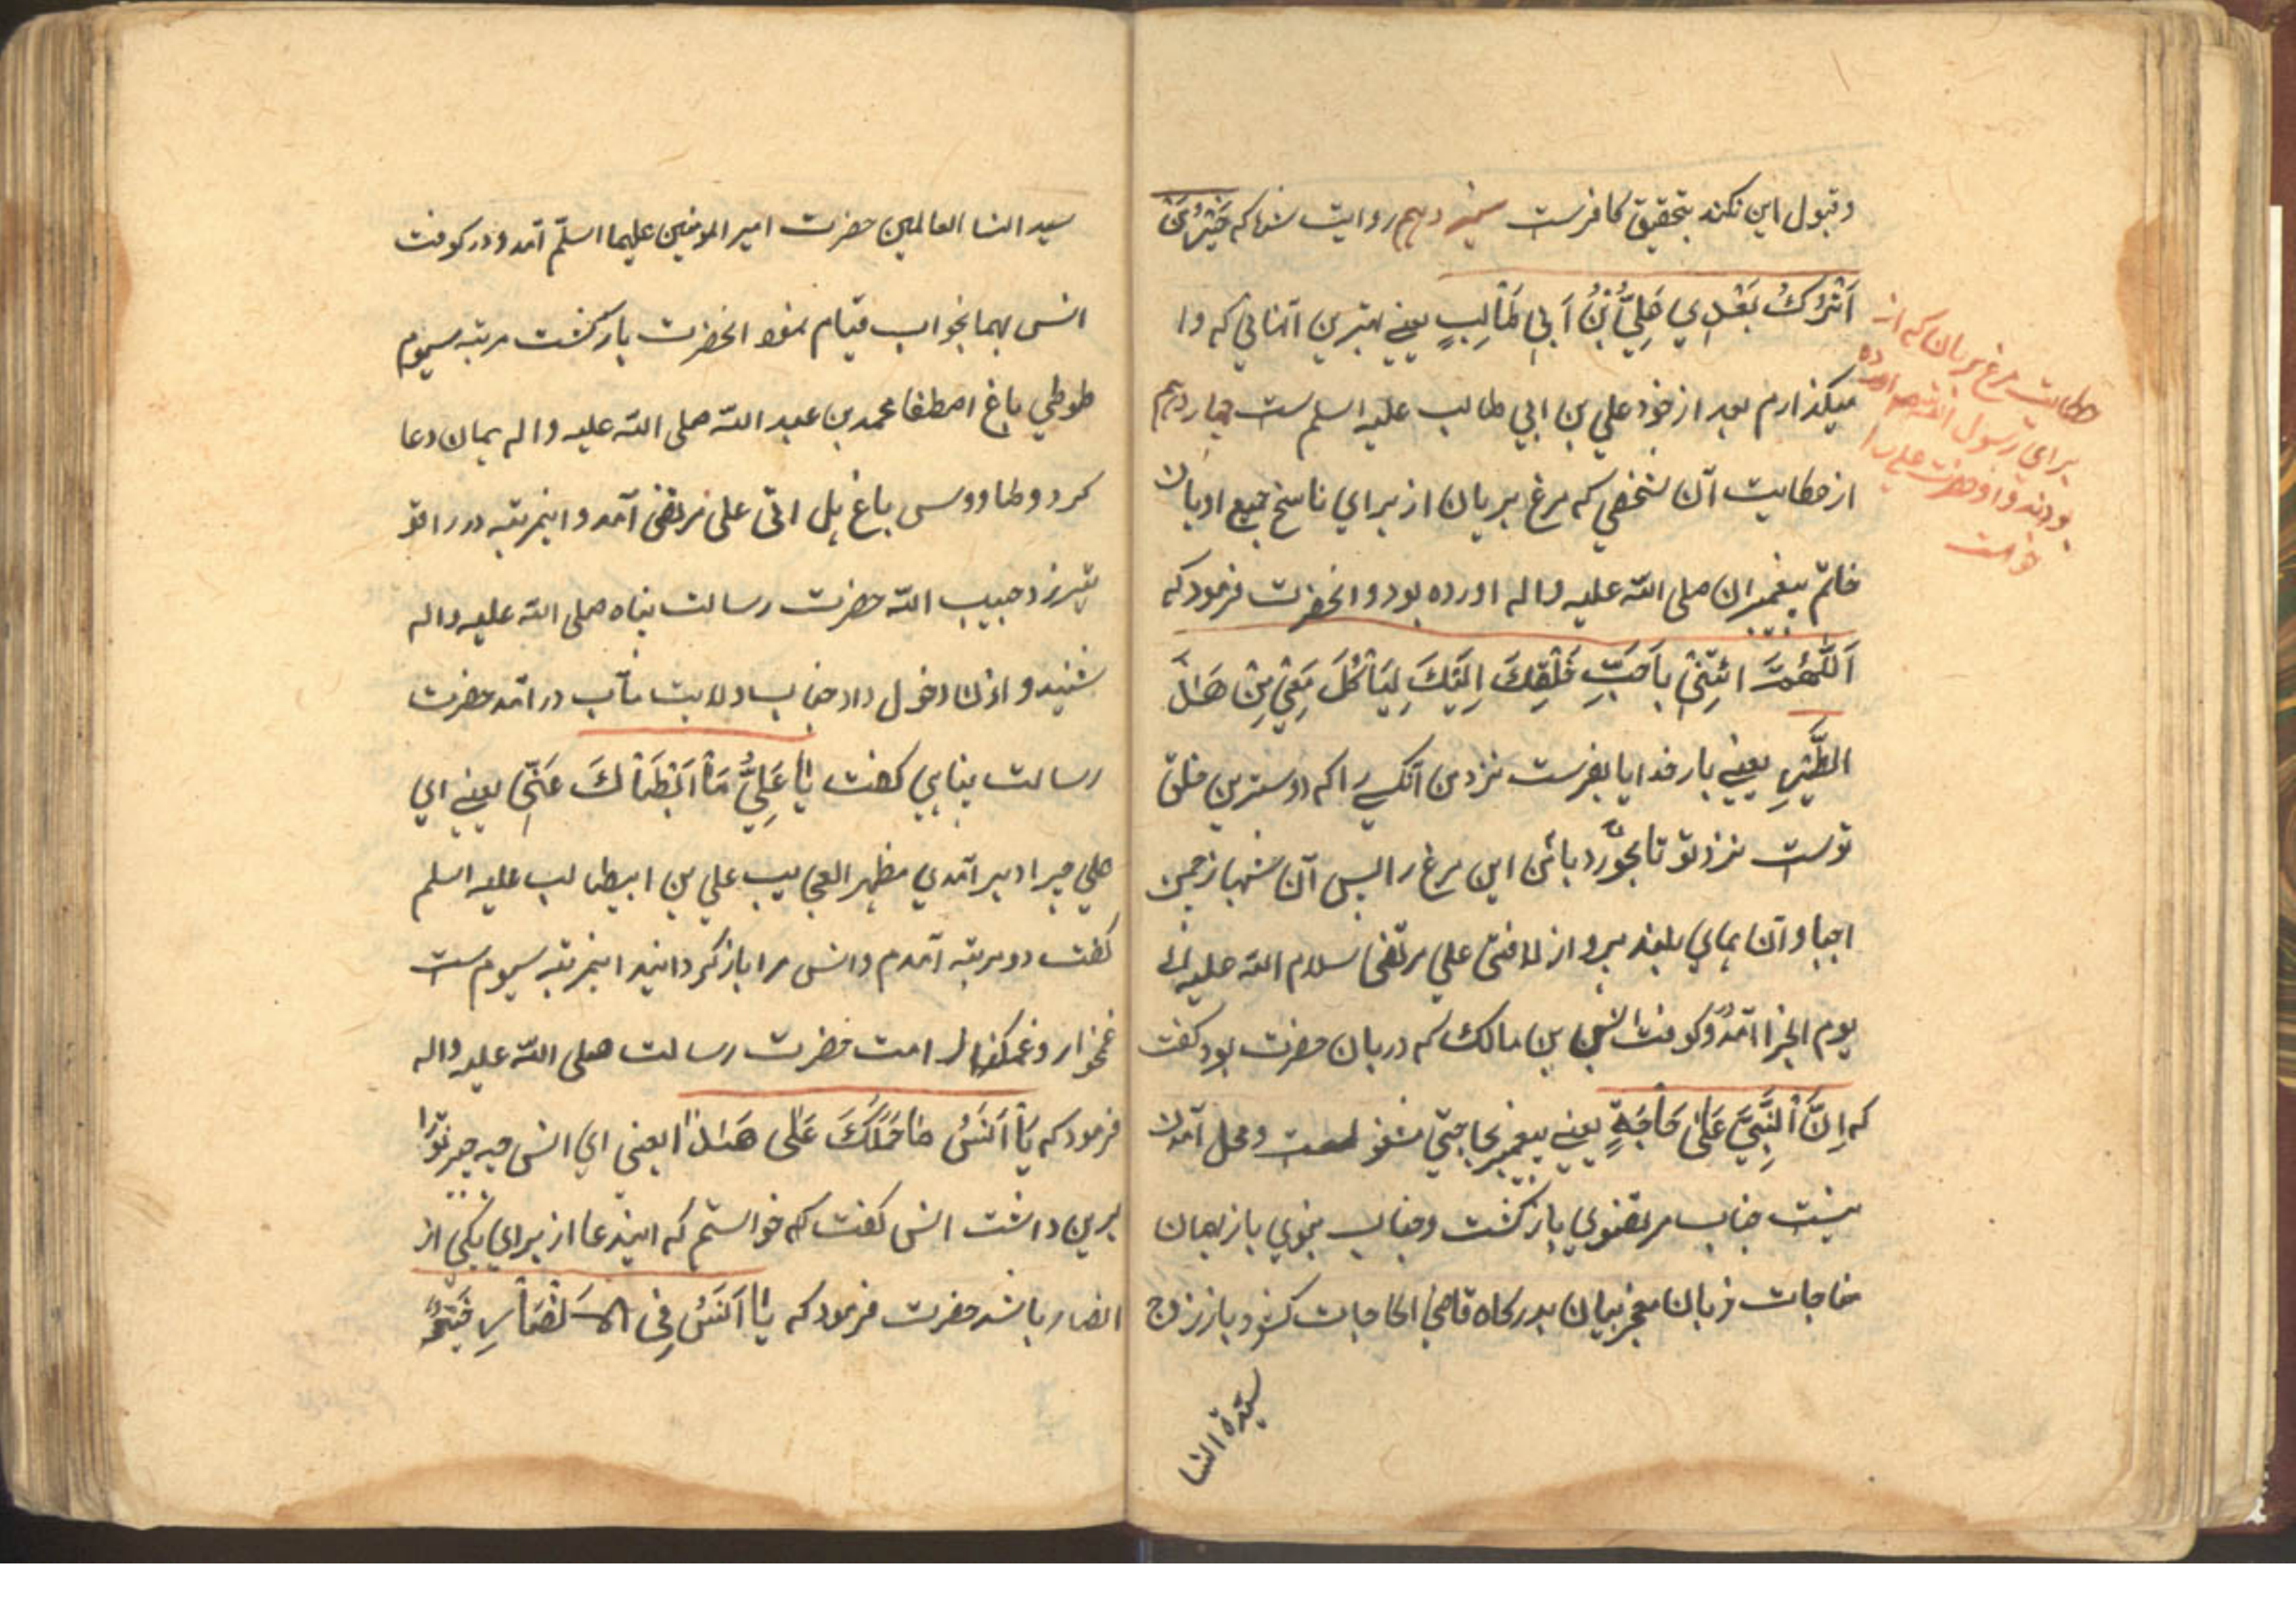 و قبول این نکند بتحقیق کافرست سیزدهم روایت شنوا که خَیْرُ مَنْ
اَتْرُکُ بَعْدِی عَلِیُّ بْنُ اَبِی طَالِبٍ یعنی بهترین آنهائی که وا
میکذارم بعد از خود علی بن ابی طالب علیه اسلم ست چهاردهم
از حکایت آن شخصی که مرغ بریان از برای ناسخ جمیع ادیان
خاتم پیغمبران صلی الله علیه واله اورده بود و انحضرت فرمود که
اَللّٰهُمَّ ائتِنْی بِاَحَبِّ خَلْقِکَ اِلَیْکَ لِیَاْکُلَ مَعِیْ مِنْ هَذَا
الطَّیْرِ یعنی بار خدایا بفرست نزد من آنکسی را که دوسترین خلق
توست نزد تو تا بخورد با من این مرغ را پس آن شهباز چمن
اجبا و آن همای بلند پرواز لا فتی علی مرتضی سلام الله علیه الی
یوم الجزا آمد و کوفت انس بن مالک که دربان حضرت بود کفت
که اِنَّ اَلنَّبِیَّ عَلٰی حَاْجَةٍ یعنی پیغمبر بحاجتی مشغولست و محل آمدن
نیست جناب مرتضوی باز کشت و جناب نبوی باز بهمان
مناجات زبان معجز بیان بدرکاه قاضی الحاجات کشود باز زوج
سیّدة النسا
حکایت مرغ بریان که از
برای رسول الله صم اورده
بودند و او حضرت علی را
خواست
سید النسا العالمین حضرت امیر المومنین علیهما اسلّم آمد و در کوفت
انس بهما بجواب قیام نمود انحضرت باز کشت مرتبه سیوم
طوطی باغ اصطفا محمد بن عبد الله صلی الله علیه واله همان دعا
کرد و طاووس باغ هل اتی علی مرتضی آمد و اینمرتبه در را قو
یتر زد حبیب الله حضرت رسالت پناه صلی الله علیه واله
شنید و اذن دخول داد جناب ولایت مآب در آمد حضرت
رسالت پناهی کفت یا عَلِیُّ مَاْ اَبْطَاْکَ عَنّی یعنی ای
علی چرا دیر آمدی مظهر العجایب علی بن ابیطالب علیه اسلم
کفت دو مرتبه آمدم و انس مرا باز کردانید اینمرتبه سیوم ست
غمخوار و غمکسار امت حضرت رسالت صلی الله علیه واله
فرمود که یَاْ اَنَسُ مَا حَمَلَکَ عَلٰی هَذَا یعنی ای انس چه چیز تورا
برین داشت انس کفت که خواستم که ایندعا از برای یکی از
انصار باشد حضرت فرمود که یَا اَنَسُ فِی الاَنْصَاْرِ